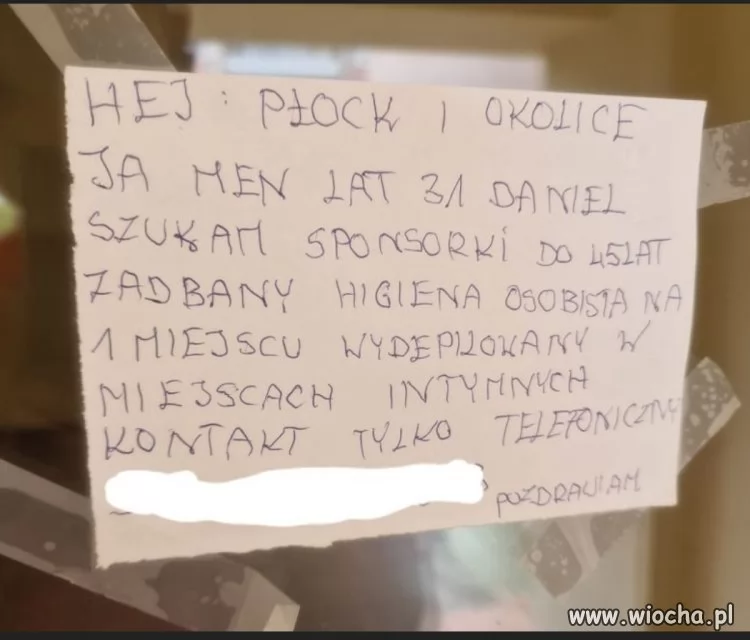 HEJ : PŁOCK I OKOLICE
JA MEN LAT 31 DANIEL
SZUKAM SPONSORKI DO 45LAT
ZADBANY HIGIENA OSOBISTA NA
1 MIEJSCU WYDEPILOWANY W
MIEJSCACH INTYMNYCH
KONTAKT TYLKO TELEFONICZNY
POZDRAWIAM
www.wiocha.pl